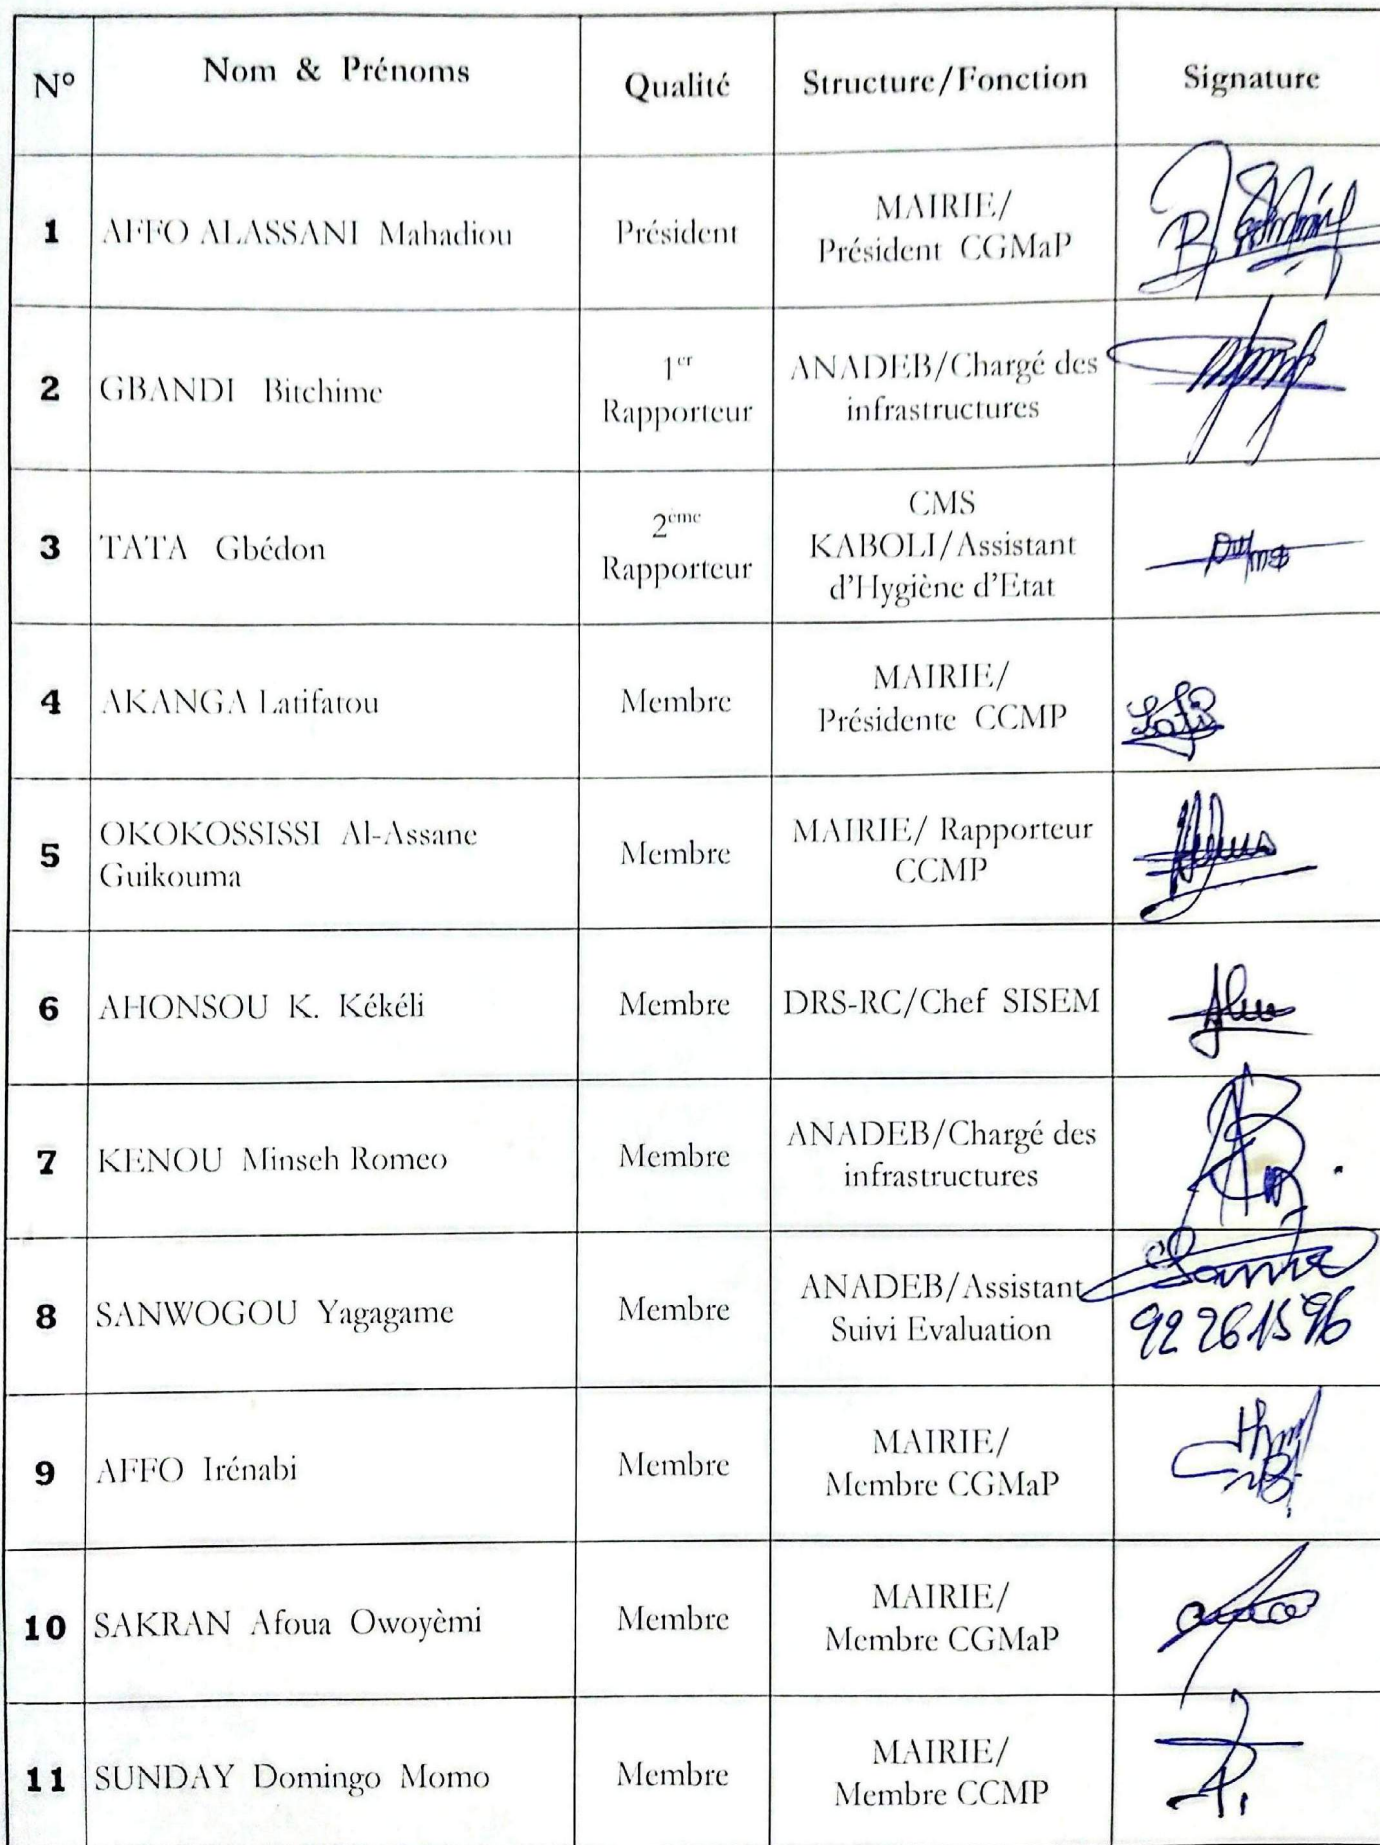 N° Nom & Prénoms Qualité Structure/Fonction Signature
1 AFFO ALASSANI Mahadiou Président MAIRIE/
Président CGMaP
2 GBANDI Bitchime 1er
Rapporteur ANADEB/Chargé des
infrastructures
3 TATA Gbédon 2ème
Rapporteur CMS
KABOLI/Assistant
d'Hygiène d'Etat
4 AKANGA Latifatou Membre MAIRIE/
Présidente CCMP
5 OKOKOSSISSI Al-Assane
Guikouma Membre MAIRIE/ Rapporteur
CCMP
6 AHONSOU K. Kékéli Membre DRS-RC/Chef SISEM
7 KENOU Minseh Romeo Membre ANADEB/Chargé des
infrastructures
8 SANWOGOU Yagagame Membre ANADEB/Assistant
Suivi Evaluation
92 26 15 96
9 AFFO Irénabi Membre MAIRIE/
Membre CGMaP
10 SAKRAN Afoua Owoyèmi Membre MAIRIE/
Membre CGMaP
11 SUNDAY Domingo Momo Membre MAIRIE/
Membre CCMP